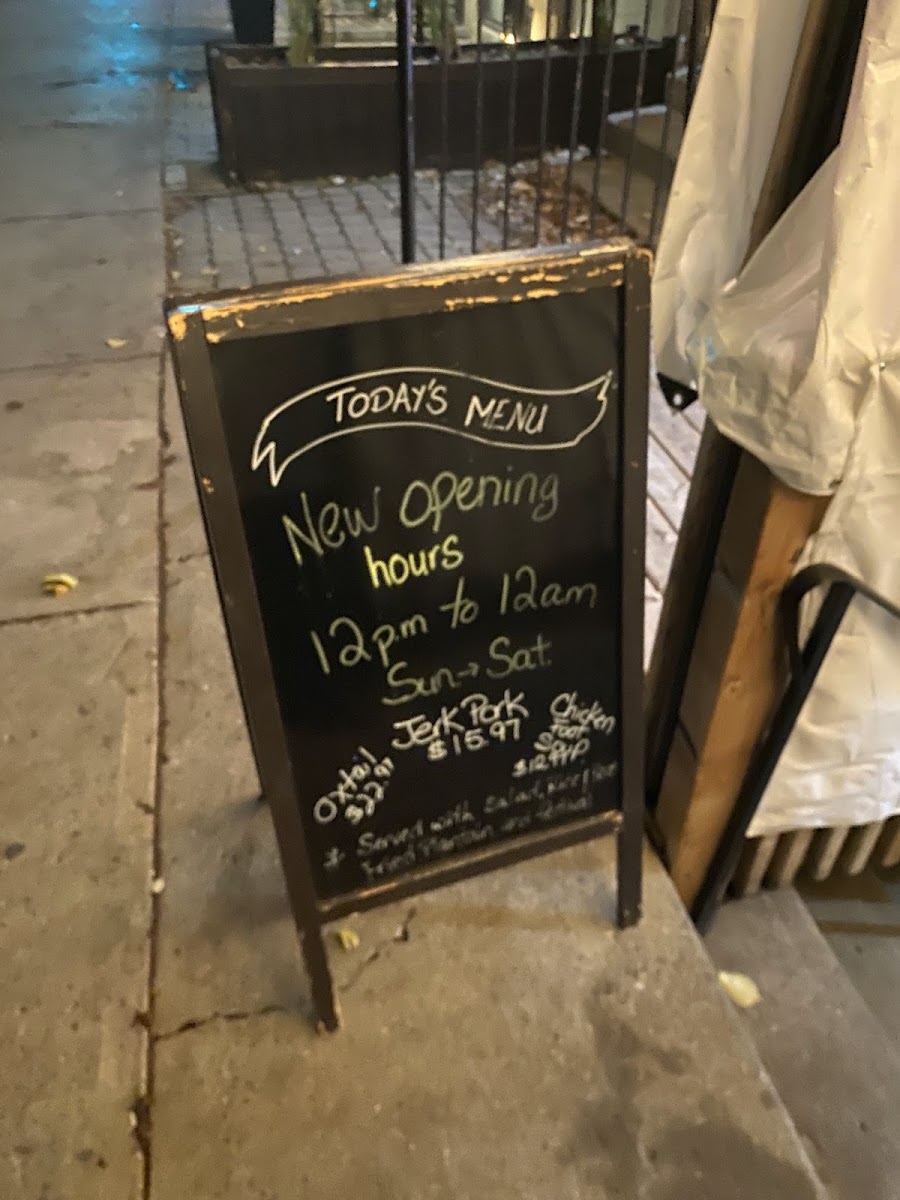 TODAY'S MENU
New opening
hours
12p.m to 12am
Sun→Sat.
Jerk Pork
$15.97
Chicken
Foot
Oxtail
$22.97
* Served with salad, rice/
Fried Plantain and festival